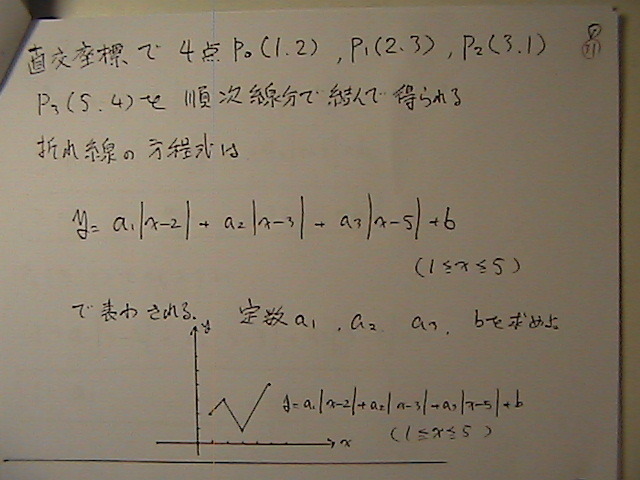 直交座標で 4点 P₀(1.2) , P₁(2.3) , P₂(3.1)
P₃(5.4)を 順次線分で結んで得られる
折れ線の方程式は
y= a₁|x-2| + a₂|x-3| + a₃|x-5| +b
(1≤x≤5)
で表わされる. 定数a₁ , a₂ a₃, bを求めよ
y
y=a₁|x-2|+a₂|x-3|+a₃|x-5|+b
(1≤x≤5)
x